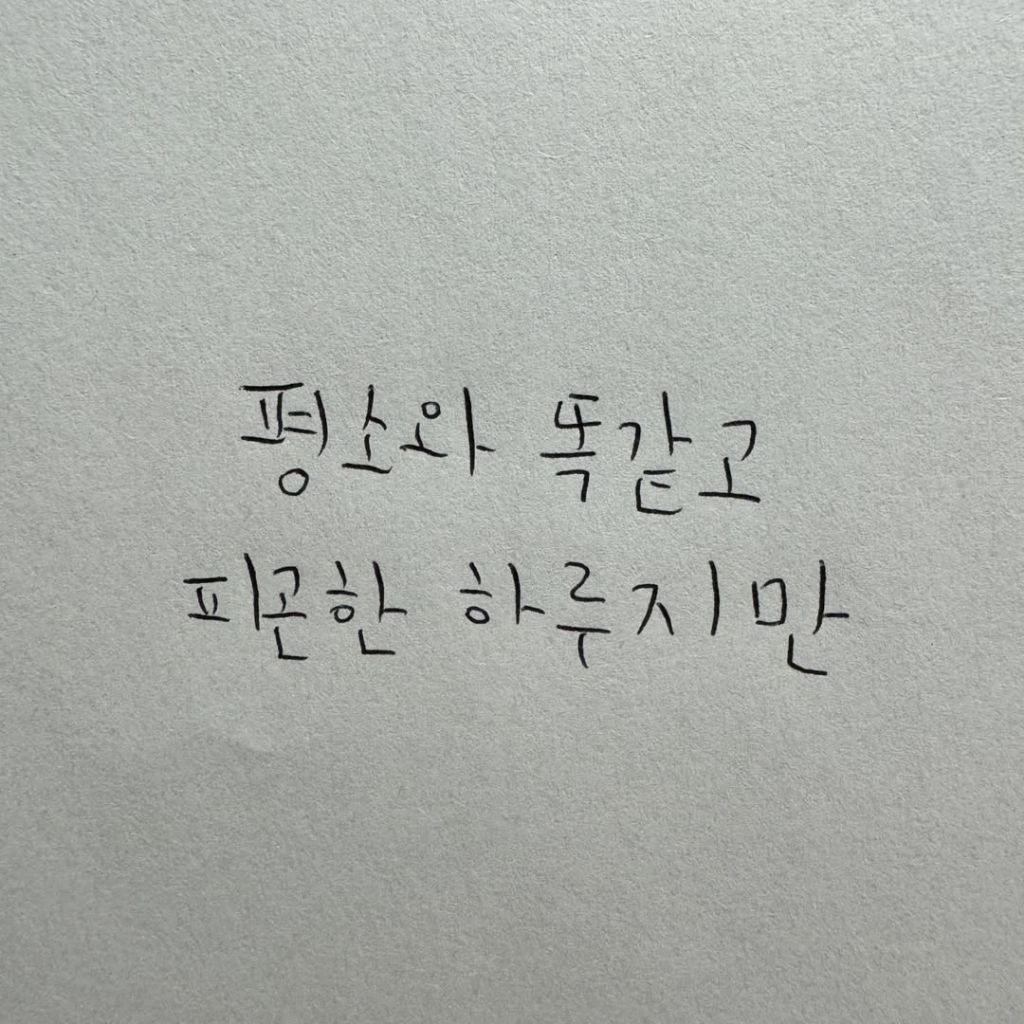 평소와 똑같고
피곤한 하루지만